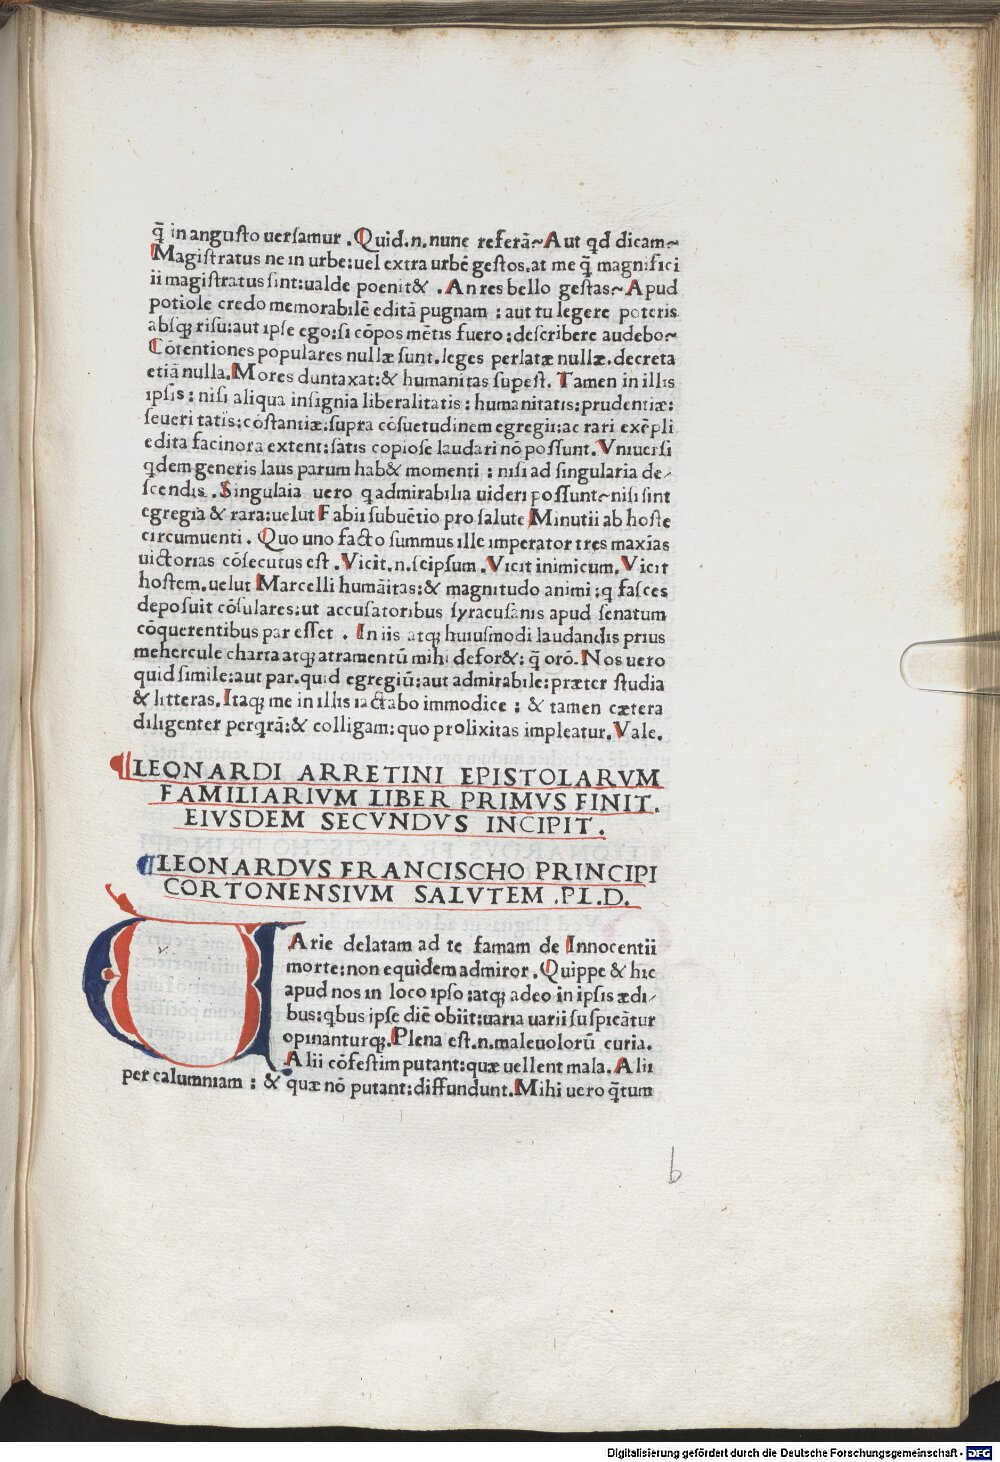 q̄ in angusto uersamur . Quid.n.nunc referā~Aut qd dicam~
Magistratus ne in urbe:uel extra urbē gestos.at me q̄ magnifici
ii magistratus sint:ualde poenit& . An res bello gestas~Apud
potiole credo memorabilē editā pugnam : aut tu legere poteris
absq; risu:aut ipse ego:si cōpos mētis fuero:describere audebo~
Cōtentiones populares nullæ sunt.leges perlatæ nullæ.decreta
etiā nulla.Mores duntaxat:& humanitas supest. Tamen in illis
ipsis : nisi aliqua insignia liberalitatis : humanitatis:prudentiæ:
seueri tatis:cōstantiæ:supra cōsuetudinem egregii:ac rari exēpli
edita facinora extent:satis copiose laudari nō possunt.Vniuersi
qdem generis laus parum hab& momenti : nisi ad singularia de-
scendis .Singulaia uero q admirabilia uideri possunt~nisi sint
egregia & rara:uelut Fabii subuētio pro salute Minutii ab hoste
circumuenti . Quo uno facto summus ille imperator tres maxīas
uictorias cōsecutus est .Vicit.n.seipsum .Vicit inimicum.Vicit
hostem.uelut Marcelli humāitas:& magnitudo animi :q fasces
deposuit cōsulares:ut accusatoribus syracusanis apud senatum
cōquerentibus par esset . In iis atq; huiusmodi laudandis prius
mehercule charta atq; atramentū mihi defor&: q̄ orō.Nos uero
quid simile:aut par.quid egregiū:aut admirabile:præter studia
& litteras.Itaq; me in illis iactabo immodice : & tamen cætera
diligenter perqrā:& colligam:quo prolixitas impleatur.Vale.
LEONARDI ARRETINI EPISTOLARVM
FAMILIARIVM LIBER PRIMVS FINIT.
EIVSDEM SECVNDVS INCIPIT .
LEONARDVS FRANCISCHO PRINCIPI
CORTONENSIVM SALVTEM .PL.D.
VArie delatam ad te famam de Innocentii
morte:non equidem admiror .Quippe & hic
apud nos in loco ipso :atq; adeo in ipsis ædi-
bus:qbus ipse diē obiit:uaria uarii suspicātur
opinanturq;.Plena est.n.maleuolorū curia.
Alii cōfestim putant:quæ uellent mala.Alii
per calumniam : & quæ nō putant:diffundunt.Mihi uero q̄tum
b
Digitalisierung gefördert durch die Deutsche Forschungsgemeinschaft - DFG